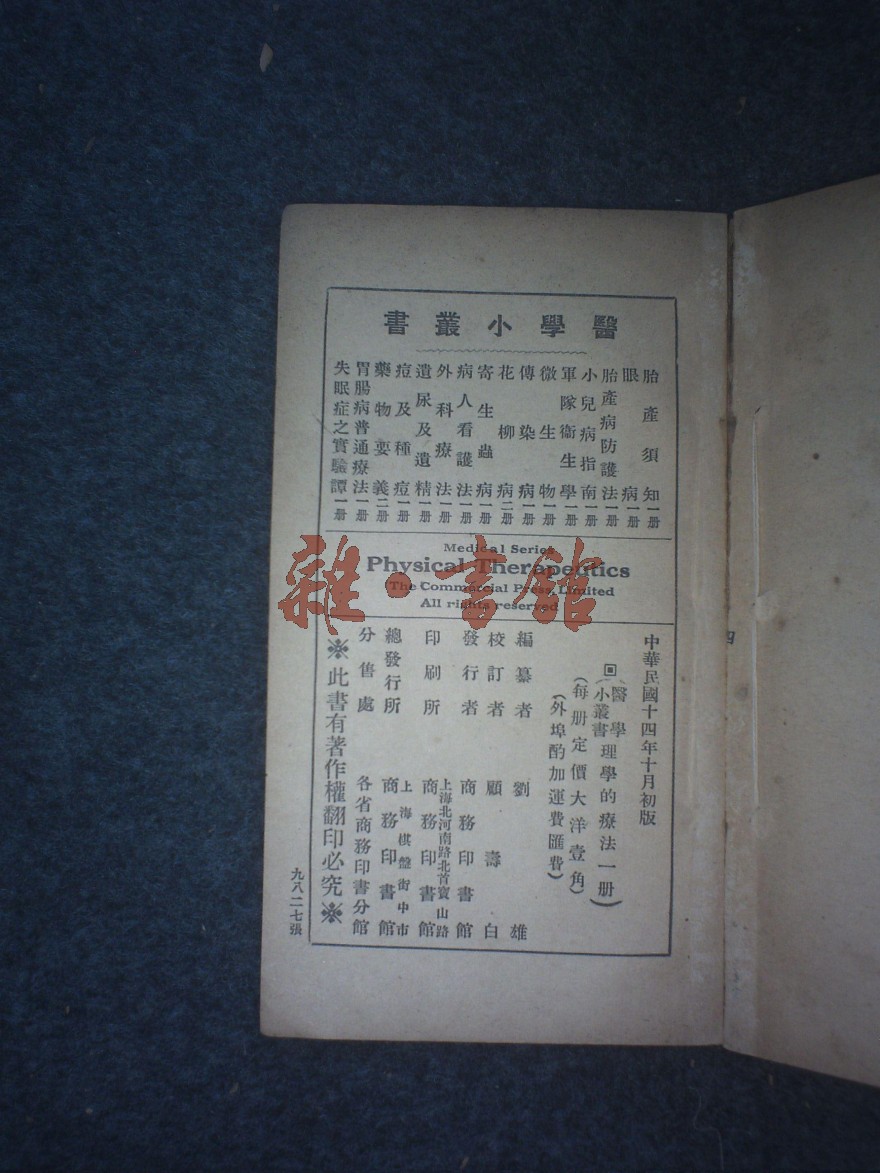 醫學小叢書
胎產須知 一册
眼病 一册
胎產病防護法 一册
小兒病指南 一册
軍隊衞生學 一册
微生物 一册
傳染病 一册
花柳病 二册
寄生蟲病 一册
病人看護法 一册
外科療法 一册
遺尿及遺精 一册
痘及種痘 一册
藥物要義 二册
胃腸病普通療法 一册
失眠症之實驗譚 一册
Medical Series
Physical Therapeutics
The Commercial Press, Limited
All rights reserved
雜·書館
中華民國十四年十月初版
(醫學小叢書 理學的療法一册)
(每册定價大洋壹角)
(外埠酌加運費匯費)
編纂者 劉雄
校訂者 顧壽白
發行者 商務印書館
印刷所 上海北河南路北首寶山路 商務印書館
總發行所 上海棋盤街中市 商務印書館
分售處 各省商務印書分館
※此書有著作權翻印必究※
九八二七張
四